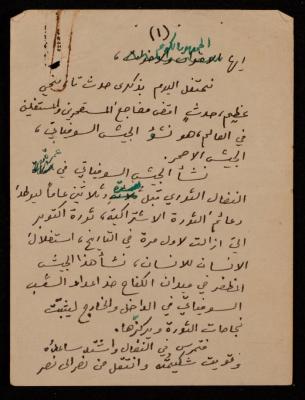 (١)
الجمهور الكريم
ايها الاخوان والاخوات ،
نحتفل اليوم بذكرى حدث تاريخي
عظيم، حدثٍ اقضّ مضاجع المستعمرين والمستغلين
في العالم، هو نشؤ الجيش السوفياتي ،
الجيش الاحمر.
نشأ الجيش السوفياتي في
النضال الثوري قبل وثلاثين عاماً ليوطد
دعائم الثورة الاشتراكية، ثورة اكتوبر
التي ازالت لاول مرة في التاريخ، استغلال
الانسان للانسان، نشأ هذا الجيش
المظفر في ميدان الكفاح ضد اعداء الشعب
السوفياتي في الداخل والخارج ليثبّت
نجاحات الثورة ويركزها.
فتمرس في النضال واشتد ساعده
وقويت شكيمته وانتقل من نصر الى نصر